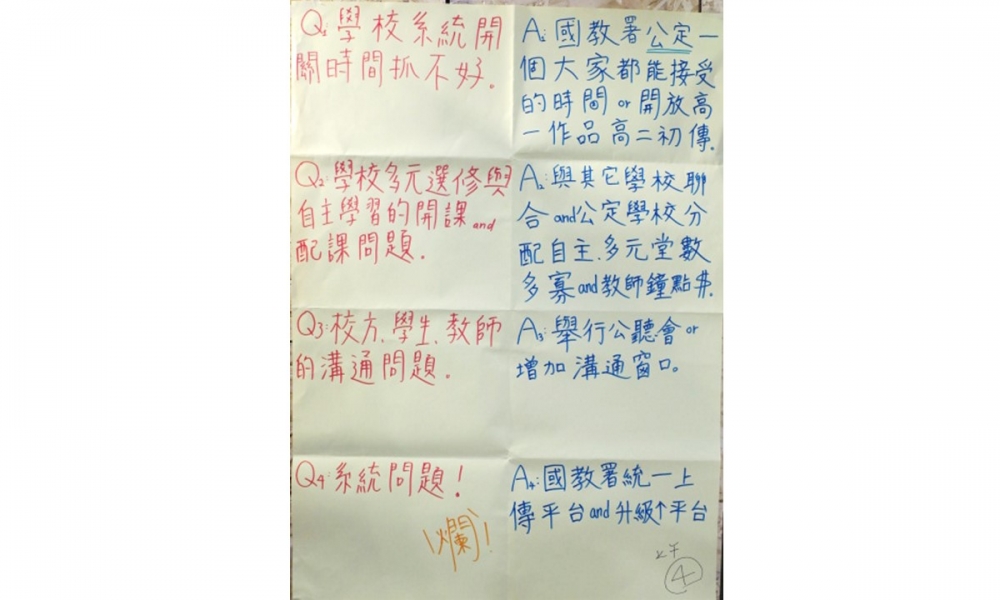 Q1:學校系統開
關時間抓不好.
A1:國教署公定一
個大家都能接受
的時間or開放高
一作品高二初傳.
Q2:學校多元選修與
自主學習的開課and
配課問題.
A2:與其它學校聯
合and公定學校分
配自主、多元堂數
多寡and教師鐘點費.
Q3:校方、學生、教師
的溝通問題.
A3:舉行公聽會or
增加溝通窗口。
Q4:系統問題!
爛!
A4:國教署統一上
傳平台and升級↑平台
④